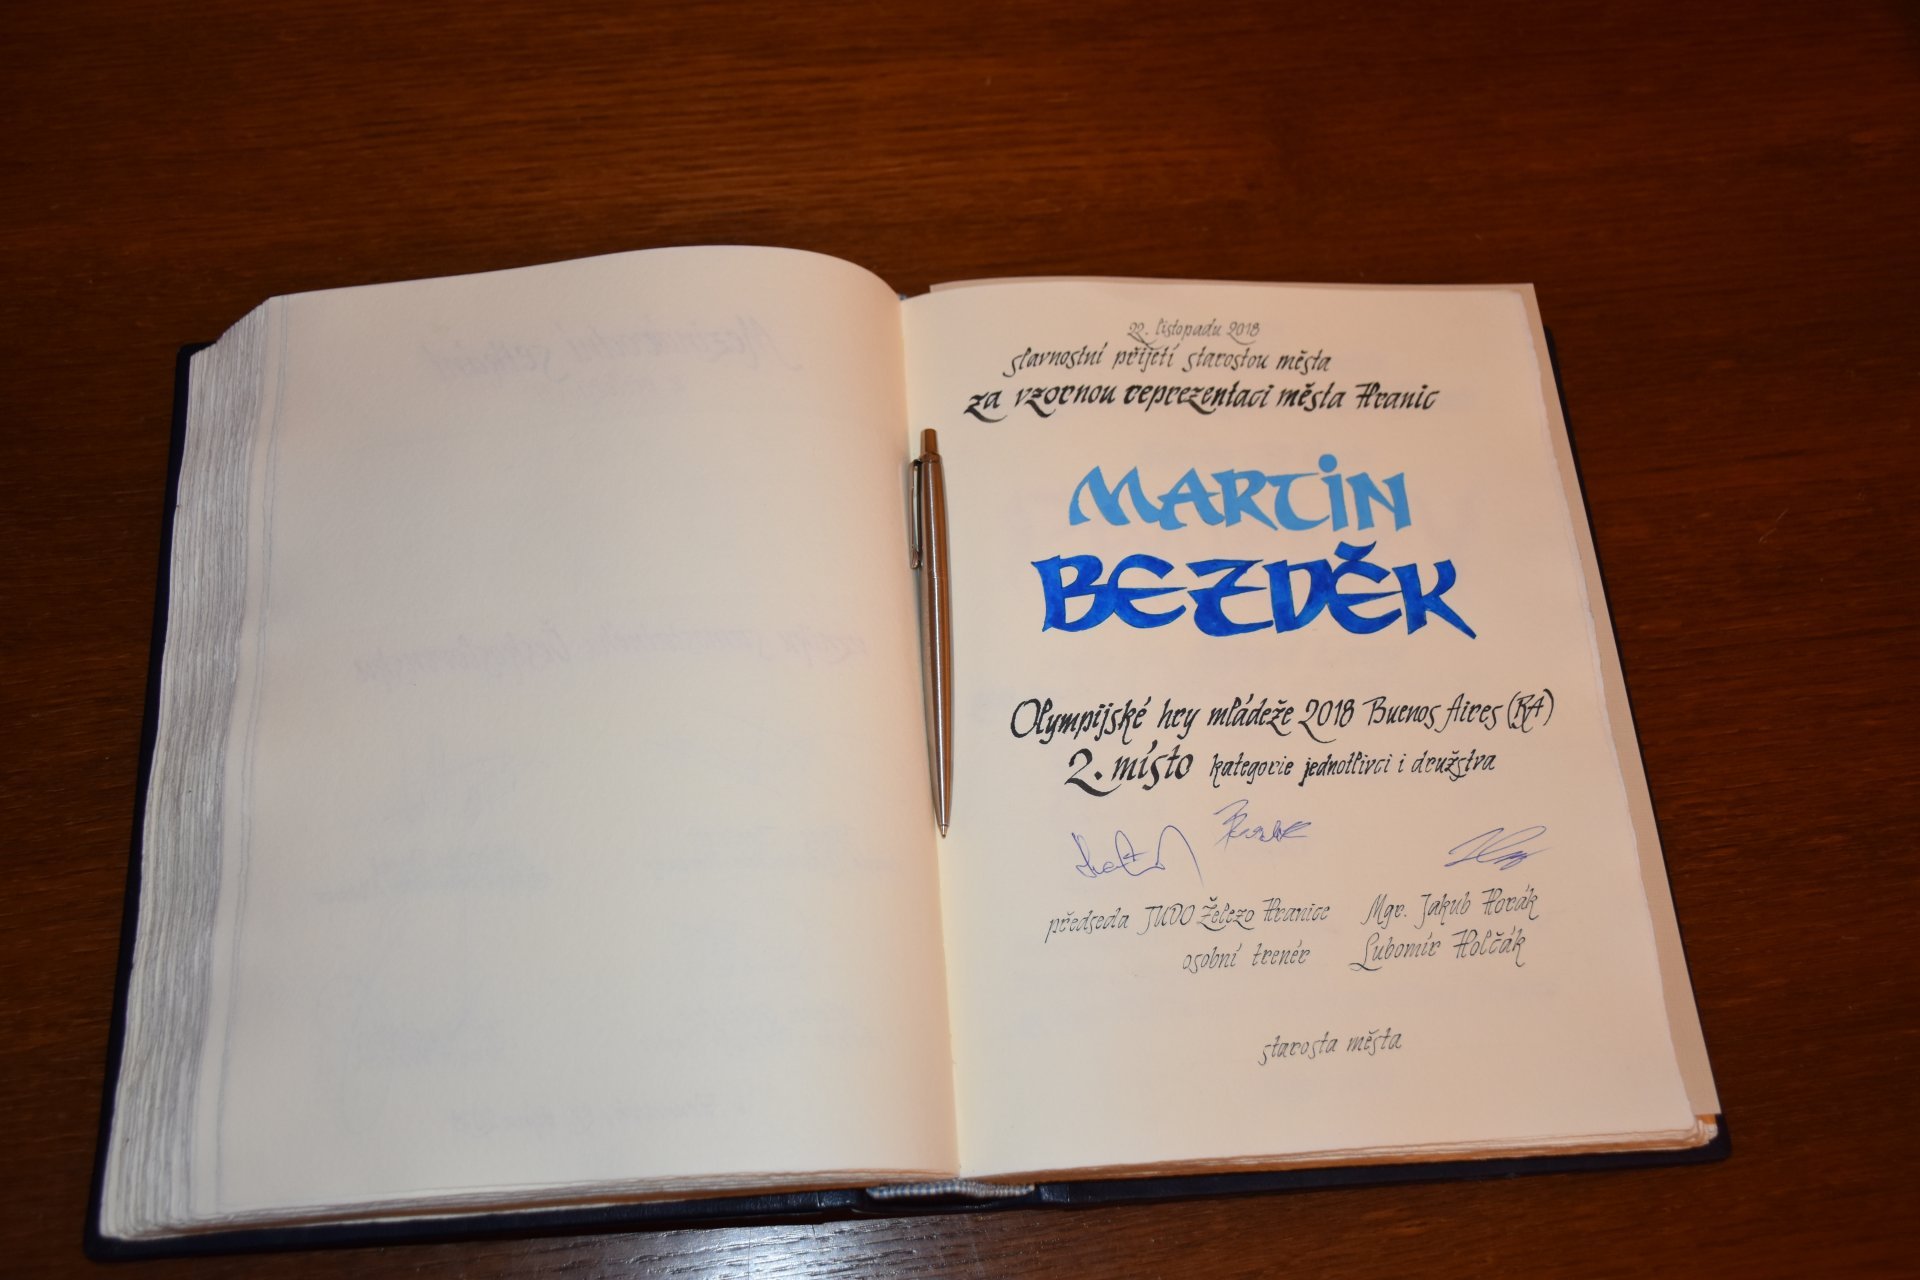 22. listopadu 2018
slavnostní přijetí starostou města
za vzornou reprezentaci města Hranic
MARTIN
BEZDĚK
Olympijské hry mládeže 2018 Buenos Aires (RA)
2. místo kategorie jednotlivci i družstva
předseda JUDO Železo Hranice Mgr. Jakub Horák
osobní trenér Lubomír Holčák
starosta města